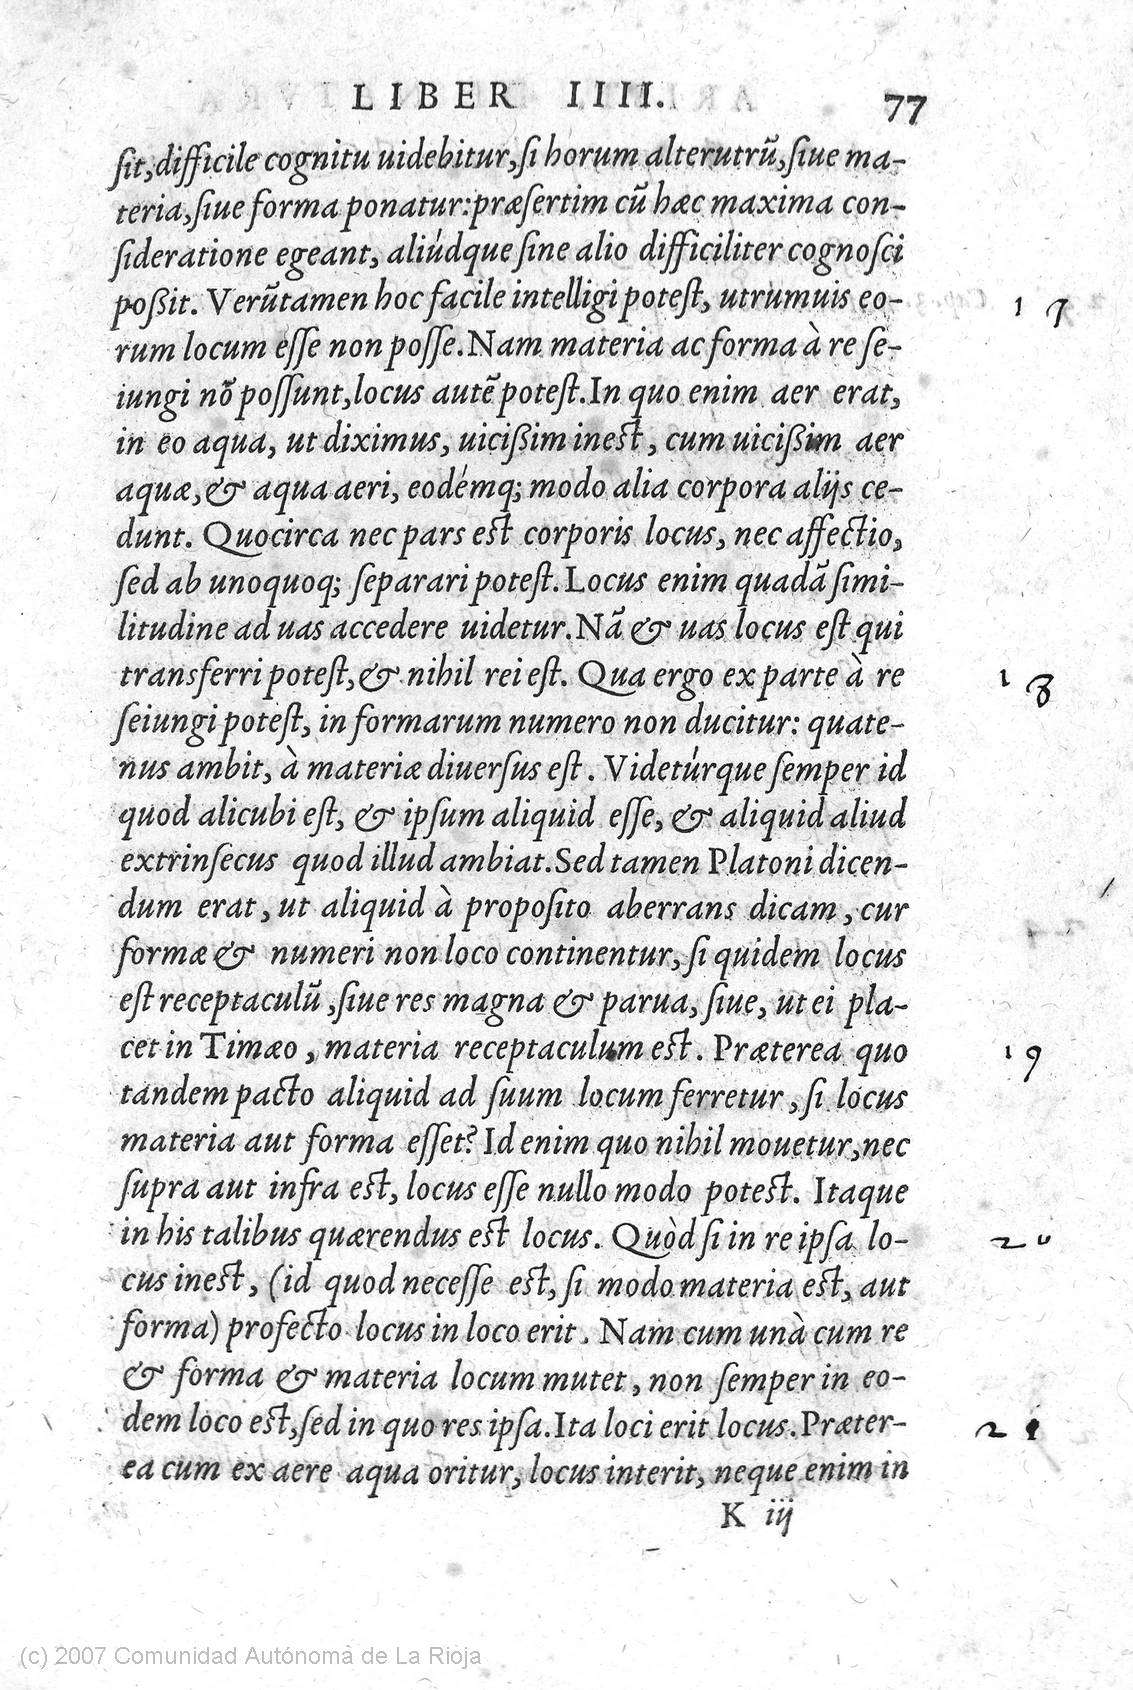 LIBER IIII. 77
ſit, difficile cognitu uidebitur, ſi horum alterutrũ, ſiue ma-
teria, ſiue forma ponatur: præſertim cũ hæc maxima con-
ſideratione egeant, aliúdque ſine alio difficiliter cognoſci
poßit. Verũtamen hoc facile intelligi poteſt, utrumuis eo- 17
rum locum eſſe non poſſe. Nam materia ac forma à re ſe-
iungi nõ poſſunt, locus autẽ poteſt. In quo enim aer erat,
in eo aqua, ut diximus, uicißim ineſt, cum uicißim aer
aquæ, & aqua aeri, eodémq; modo alia corpora alijs ce-
dunt. Quocirca nec pars eſt corporis locus, nec affectio,
ſed ab unoquoq; ſeparari poteſt. Locus enim quadã ſimi-
litudine ad uas accedere uidetur. Nã & uas locus eſt qui
transferri poteſt, & nihil rei eſt. Qua ergo ex parte à re 18
ſeiungi poteſt, in formarum numero non ducitur: quate-
nus ambit, à materiæ diuerſus eſt. Videtúrque ſemper id
quod alicubi eſt, & ipſum aliquid eſſe, & aliquid aliud
extrinſecus quod illud ambiat. Sed tamen Platoni dicen-
dum erat, ut aliquid à propoſito aberrans dicam, cur
formæ & numeri non loco continentur, ſi quidem locus
eſt receptaculũ, ſiue res magna & parua, ſiue, ut ei pla-
cet in Timæo, materia receptaculum eſt. Præterea quo 19
tandem pacto aliquid ad ſuum locum ferretur, ſi locus
materia aut forma eſſet? Id enim quo nihil mouetur, nec
ſupra aut infra eſt, locus eſſe nullo modo poteſt. Itaque
in his talibus quærendus eſt locus. Quòd ſi in re ipſa lo- 20
cus ineſt, (id quod neceſſe eſt, ſi modo materia eſt, aut
forma) profecto locus in loco erit. Nam cum unà cum re
& forma & materia locum mutet, non ſemper in eo-
dem loco eſt, ſed in quo res ipſa. Ita loci erit locus. Præter- 21
ea cum ex aere aqua oritur, locus interit, neque enim in
K iij
(c) 2007 Comunidad Autónoma de La Rioja